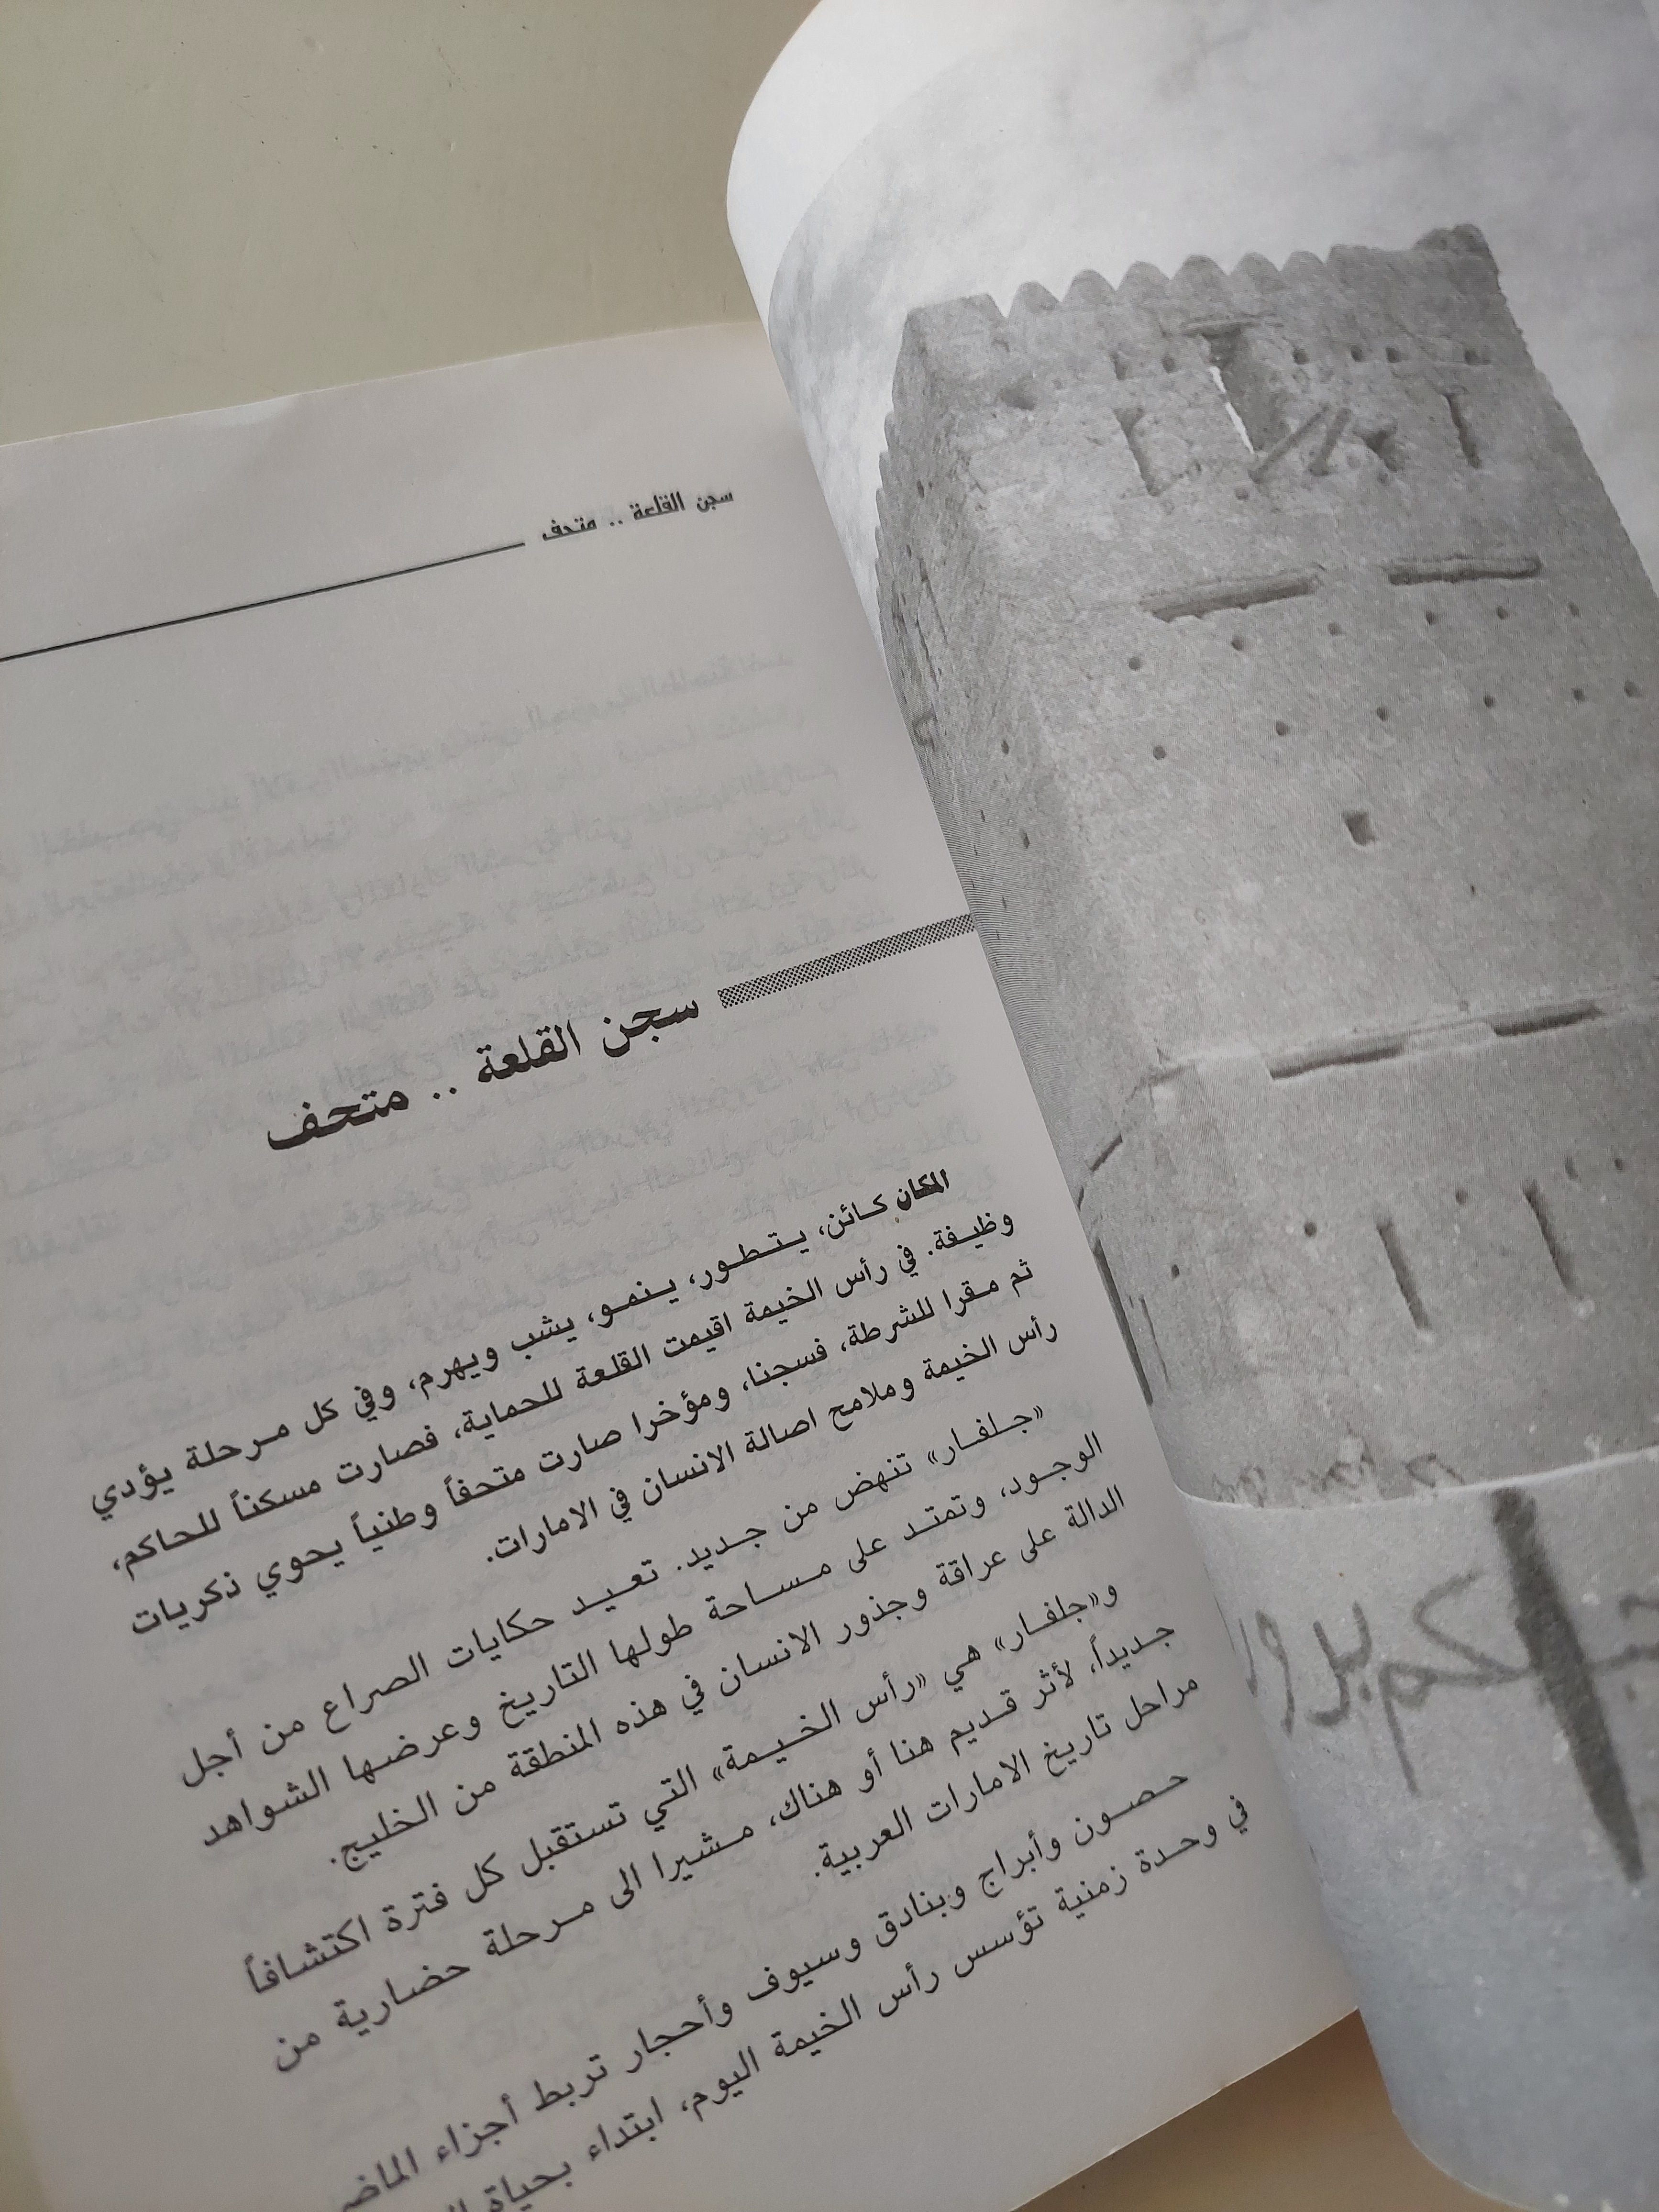 سجن القلعة .. متحف
سجن القلعة .. متحف
المكان كائن، يتطور، ينمو، يشب ويهرم، وفي كل مرحلة يؤدي
وظيفة. في رأس الخيمة اقيمت القلعة للحماية، فصارت مسكناً للحاكم،
ثم مقرا للشرطة، فسجنا، ومؤخرا صارت متحفاً وطنياً يحوي ذكريات
رأس الخيمة وملامح اصالة الانسان في الامارات.
«جلفار» تنهض من جديد. تعيد حكايات الصراع من أجل
الوجود، وتمتد على مساحة طولها التاريخ وعرضها الشواهد
الدالة على عراقة وجذور الانسان في هذه المنطقة من الخليج.
و«جلفار» هي «رأس الخيمة» التي تستقبل كل فترة اكتشافاً
جديداً، لأثر قديم هنا أو هناك، مشيرا الى مرحلة حضارية من
مراحل تاريخ الامارات العربية.
حصون وأبراج وبنادق وسيوف وأحجار تربط أجزاء
في وحدة زمنية تؤسس رأس الخيمة اليوم، ابتداء بحياة